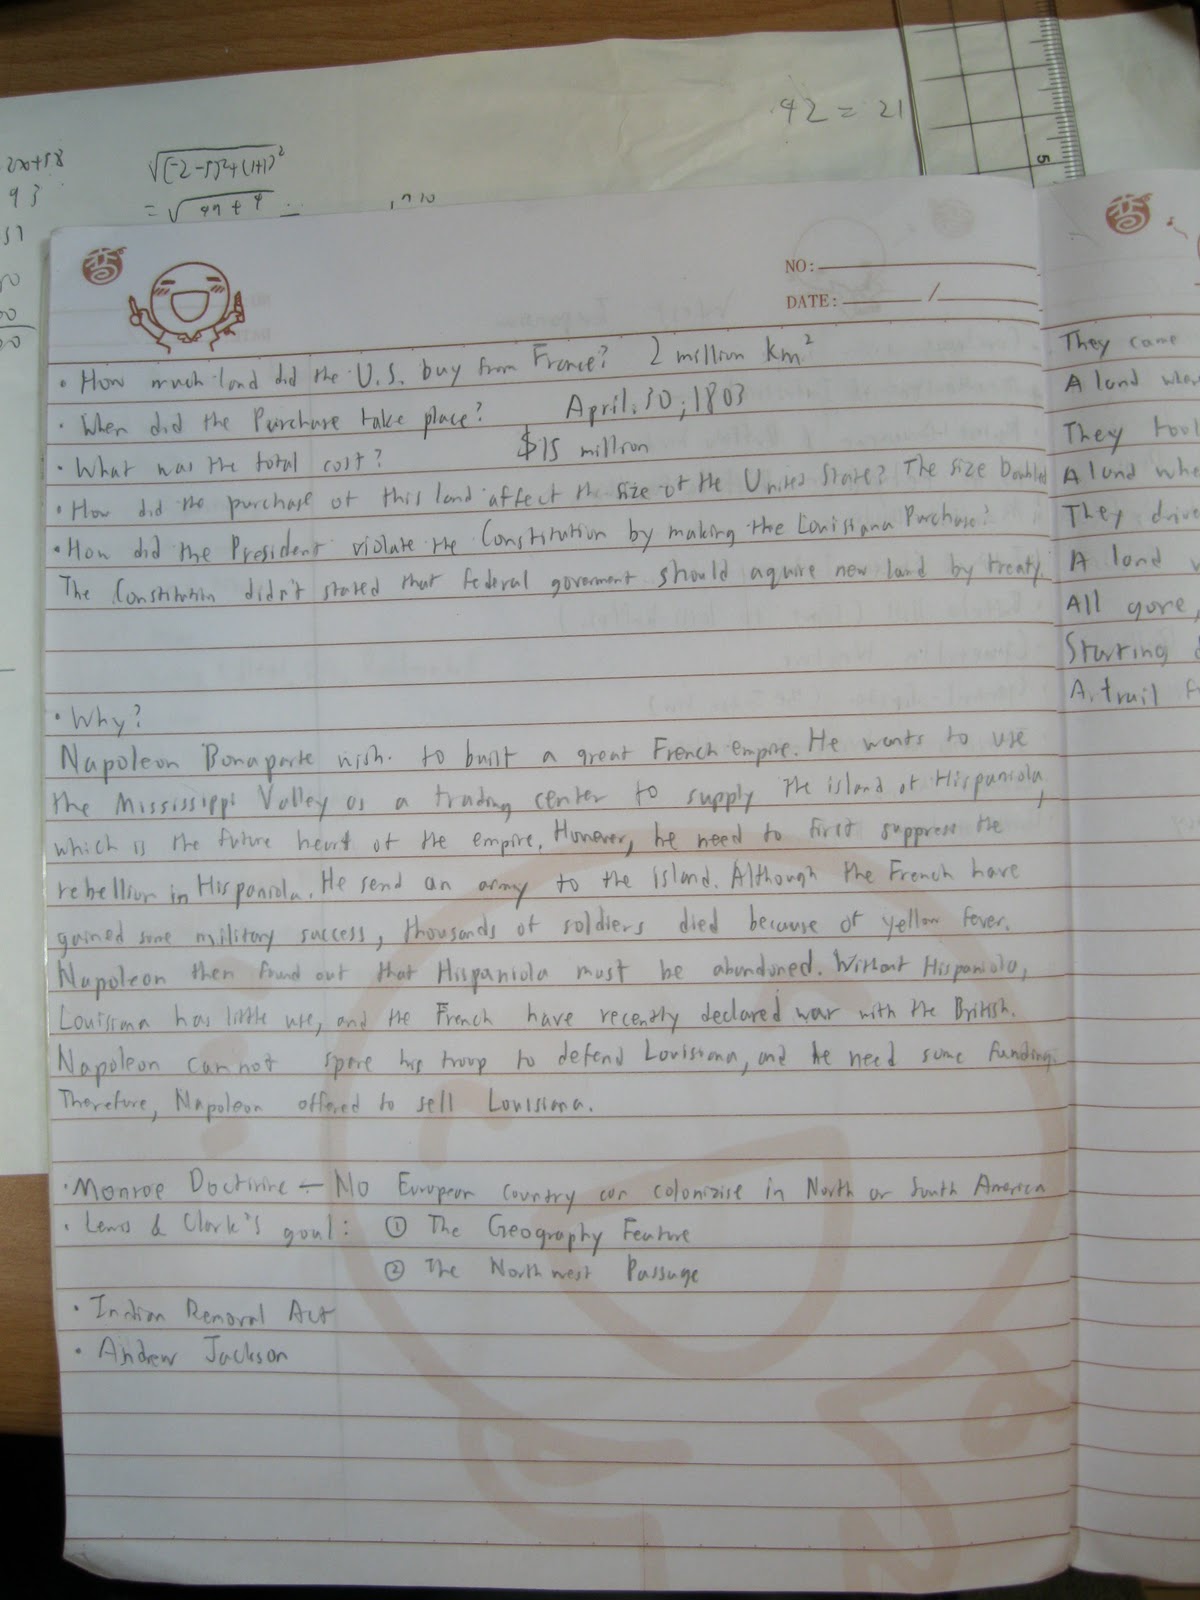 42 = 21
5
2x+58
93
√(-2-5)²+(1+1)²
= √49+4 =
NO:
DATE: /
• How much land did the U.S. buy from France? 2 million km²
• When did the Purchase take place? April.30,1803
• What was the total cost? $15 million
• How did the purchase of this land affect the size of the United State? The size Doubled
• How did the President violate the Constitution by making the Louisiana Purchase?
The Constitution didn't stated that federal goverment should aquire new land by treaty.
• Why?
Napoleon Bonaparte wish to built a great French empire. He wants to use
the Mississippi Valley as a trading center to supply the island of Hispaniola,
which is the future heart of the empire. However, he need to first suppress the
rebellion in Hispaniola. He send an army to the island. Although the French have
gained some military success, thousands of soldiers died because of yellow fever.
Napoleon then found out that Hispaniola must be abandoned. Without Hispaniola,
Louisiana has little use, and the French have recently declared war with the British.
Napoleon cannot spare his troop to defend Louisiana, and he need some funding.
Therefore, Napoleon offered to sell Louisiana.
• Monroe Doctirine – No European country can colonize in North or South America
• Lewis & Clark's goal: ① The Geography Feature
② The Northwest Passage
• Indian Removal Act
• Andrew Jackson
They came
A land whe
They took
A land whe
They drive
A land
All gone,
Starting
A trail